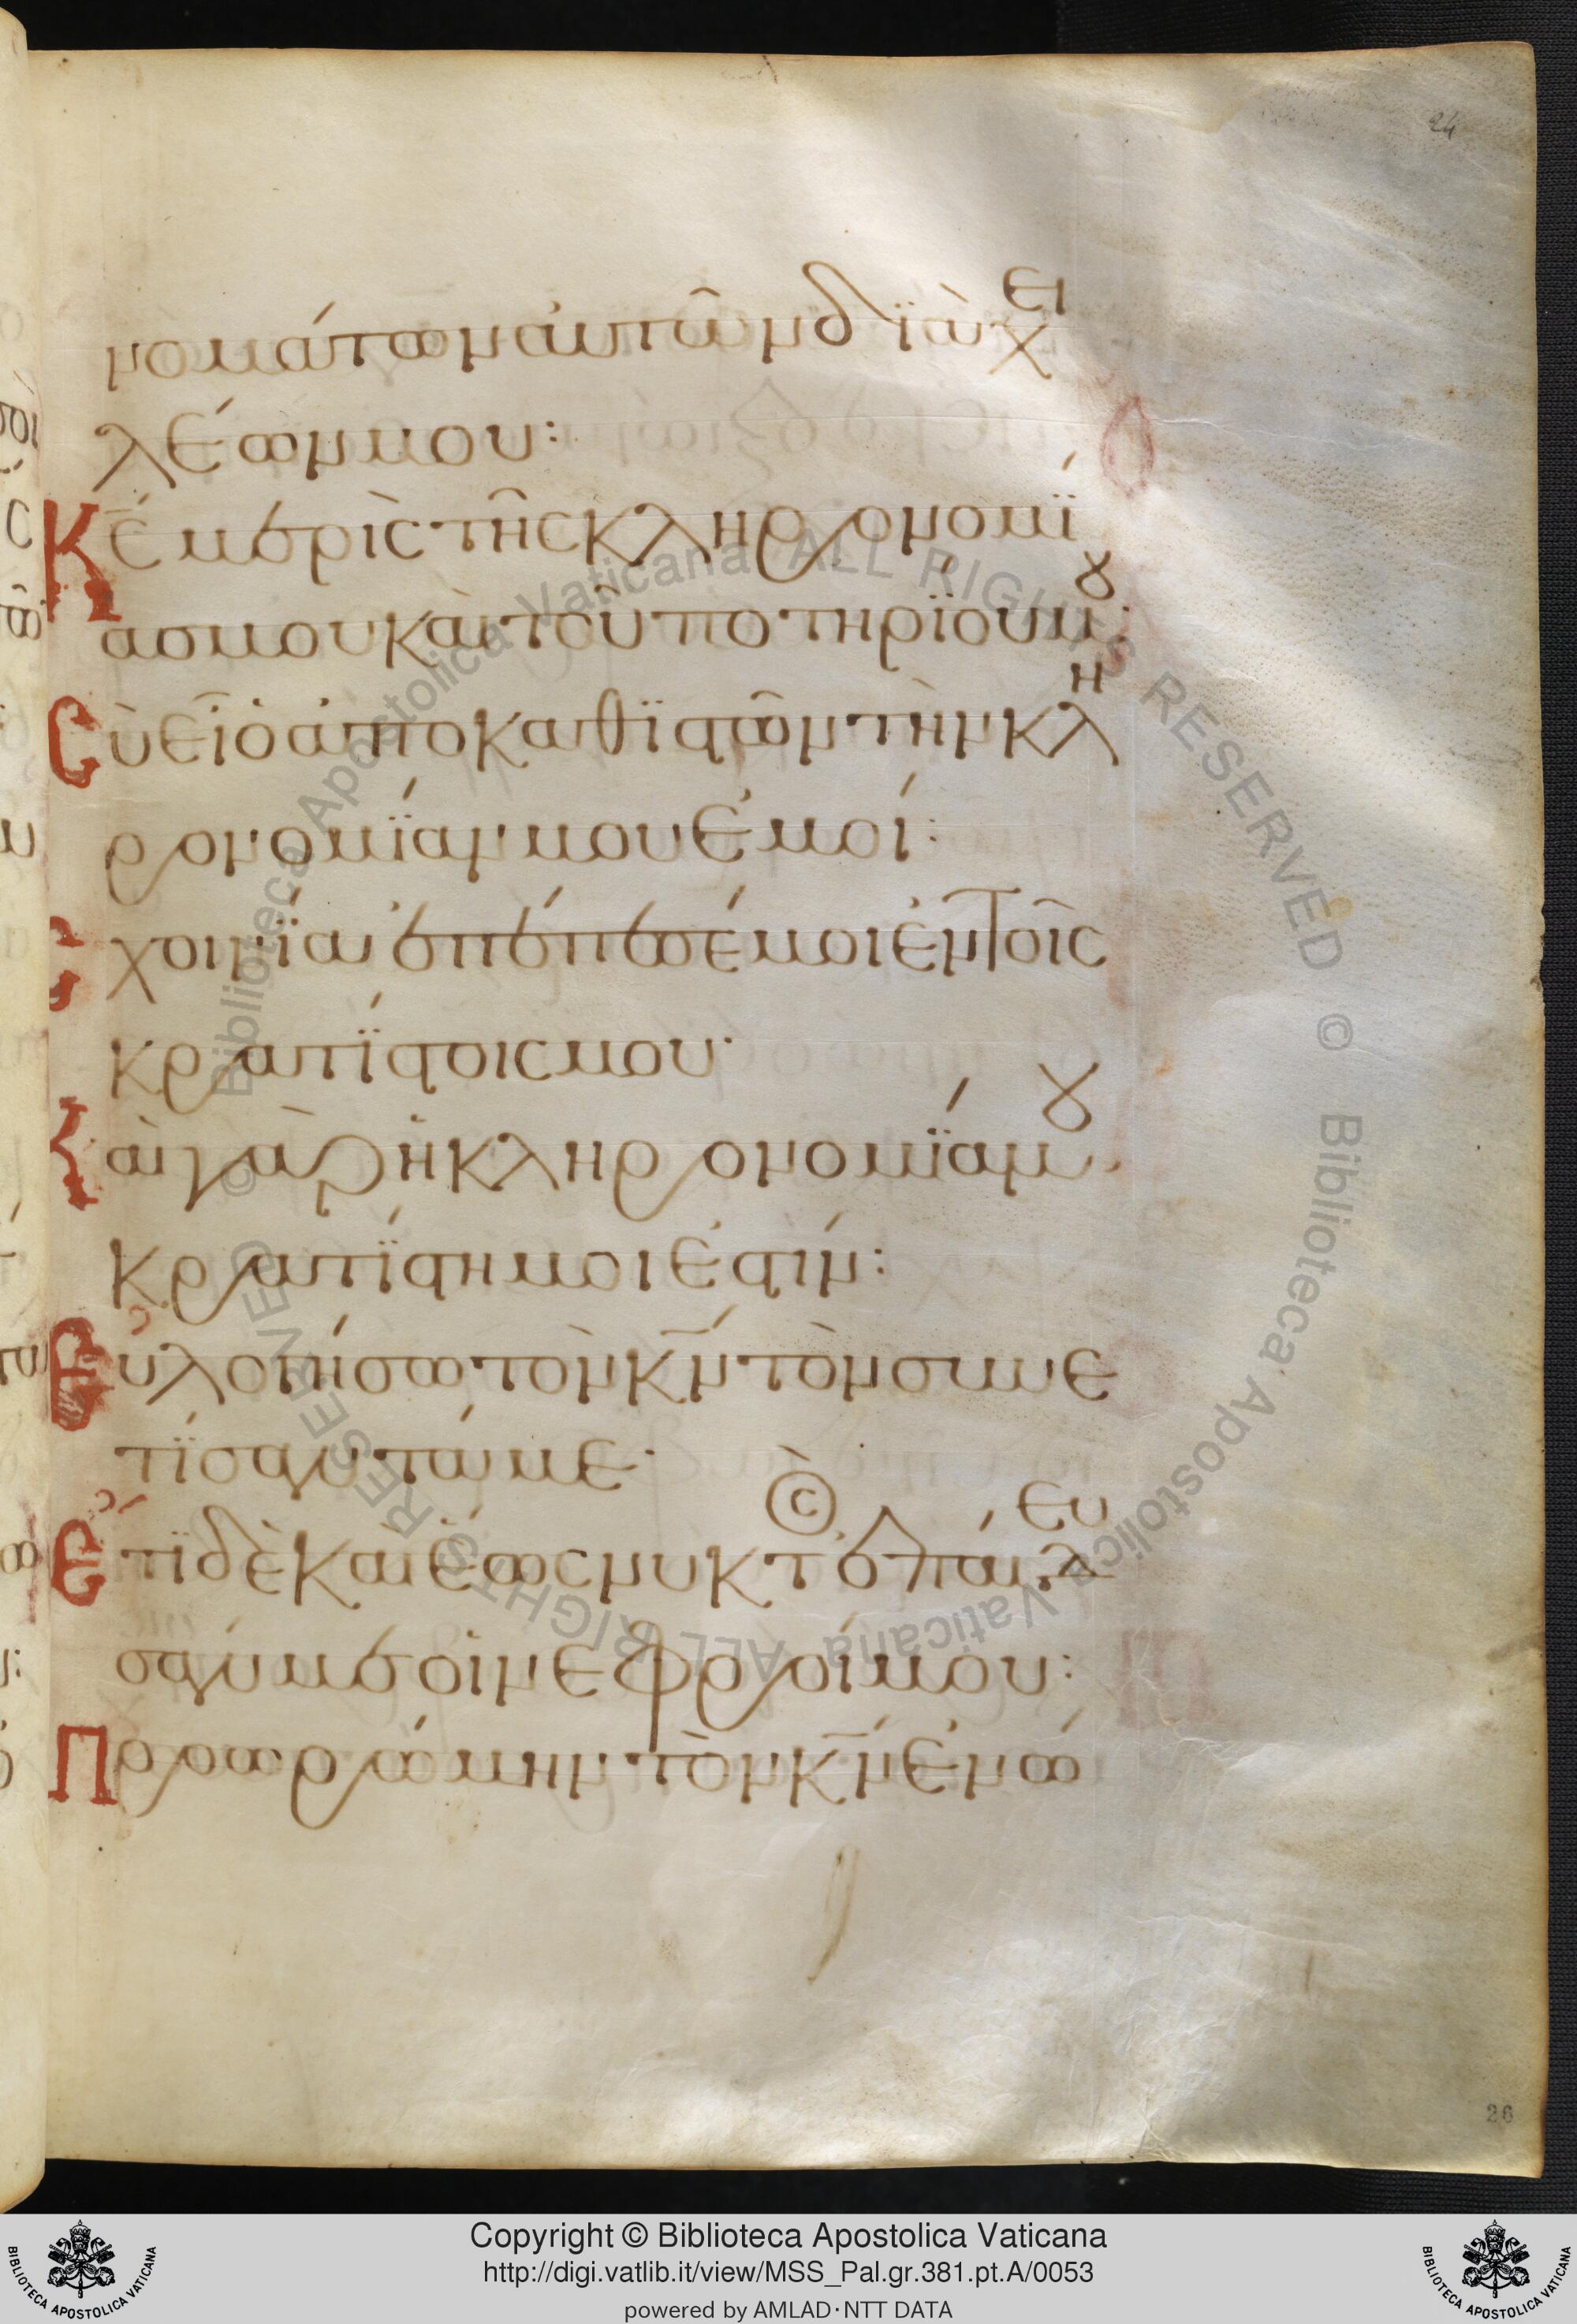 24
νομάτων αυτῶν διὰ χει
λέων μου:
Κς μερὶς τῆς κληρονομί
ας μου καὶ τοῦ ποτηρίου μου:
Σὺ εἶ ὁ ἀποκαθιστῶν τὴν κλη
ρονομίαν μου ἐμοί:
Σχοινία ἐπέπεσέ μοι ἐν τοῖς
κρατίστοις μου·
Καὶ γὰρ ἡ κληρονομία μου
κρατίστη μοι ἐστίν:
Εὐλογήσω τὸν κν τὸν συνε
τίσαντά με·
Ἔτι δὲ καὶ ἕως νυκτὸς ἐπαίδευ
σάν με οἱ νεφροί μου:
Προωρώμην τὸν κν ἐνώ
26
© Biblioteca Apostolica Vaticana ALL RIGHTS RESERVED © Biblioteca Apostolica Vaticana ALL RIGHTS RESERVED
Copyright © Biblioteca Apostolica Vaticana
http://digi.vatlib.it/view/MSS_Pal.gr.381.pt.A/0053
powered by AMLAD·NTT DATA
BIBLIOTECA APOSTOLICA VATICANA
BIBLIOTECA APOSTOLICA VATICANA